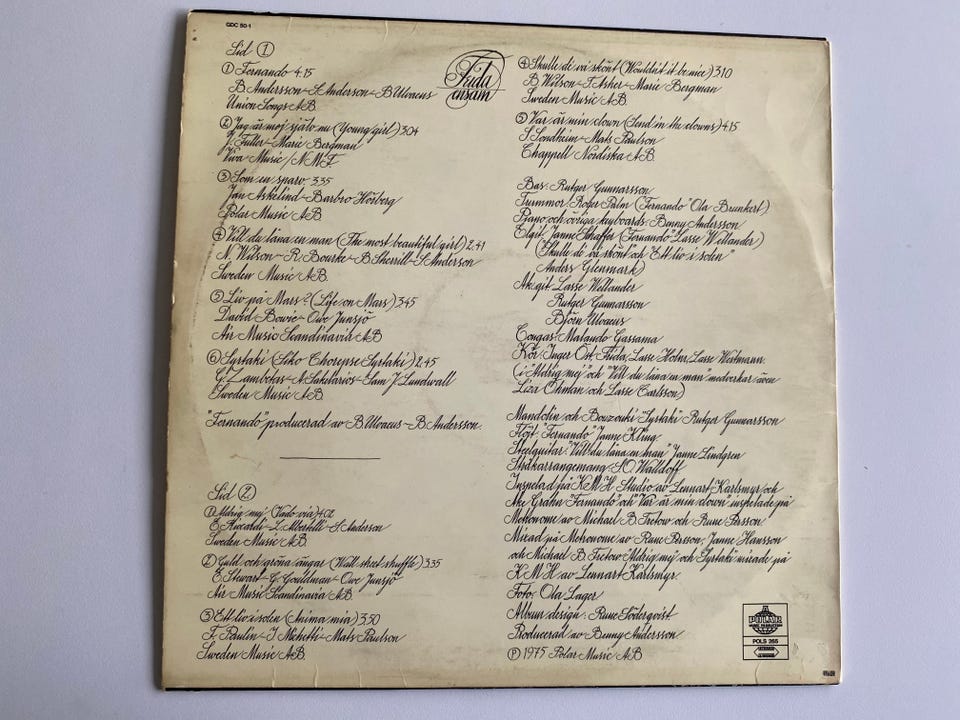 GDC 50-1
Sid 1
1 Fernando 4.15
B. Andersson-S. Anderson-B. Ulvaeus
Union Songs A.B.
2 Jag är mej själv nu (Young girl) 3.04
J. Fuller-Marie Bergman
Viva Music/N.M.F.
3 Som en sparv 3.35
Jan Askelind-Barbro Hörberg
Polar Music A.B.
4 Vill du låna en man (The most beautiful girl) 2.41
N. Wilson-R. Bourke-B. Sherrill-S. Anderson
Sweden Music A.B.
5 Liv på Mars? (Life on Mars) 3.45
David Bowie-Owe Junsjö
Air Music Scandinavia A.B.
6 Syrtaki (Siko Chorepse Syrtaki) 2.45
G. Zambetas-A. Sakelarios-Sam J. Lundwall
Sweden Music A.B.
"Fernando" producerad av B. Ulvaeus-B. Andersson.
Sid 2
1 Aldrig mej (Vado via) 4.02
E. Riccardi-L. Albertelli-S. Anderson
Sweden Music A.B.
2 Guld och gröna ängar (Wall street shuffle) 3.35
E. Stewart-G. Gouldman-Owe Junsjö
Air Music Scandinavia A.B.
3 Ett liv i solen (Anima mia) 3.50
F. Paulin-I. Michetti-Mats Paulson
Sweden Music A.B.
Frida
ensam
4 Skulle de va skönt (Wouldn't it be nice) 3.10
B. Wilson-T. Asher-Marie Bergman
Sweden Music A.B.
5 Var är min clown (Send in the clowns) 4.15
S. Sondheim-Mats Paulson
Chappell Nordiska A.B.
Bas: Rutger Gunnarsson
Trummor: Roger Palm ("Fernando" Ola Brunkert)
Piano och övriga keyboards: Benny Andersson
Elgit: Janne Schaffer ("Fernando" Lasse Wellander)
("Skulle de va skönt" och "Ett liv i solen"
Anders Glenmark)
Ak.git: Lasse Wellander
Rutger Gunnarsson
Björn Ulvaeus
Congas: Malando Gassama
Kör: Inger Öst, Frida, Lasse Holm, Lasse Westmann.
(i "Aldrig mej" och "Vill du låna en man" medverkar även
Liza Öhman och Lasse Carlsson)
Mandolin och Bouzouki "Syrtaki" Rutger Gunnarsson
Flöjt: "Fernando" Janne Kling
Steelguitar: "Vill du låna en man" Janne Lindgren
Stråkarrangemang: S.O. Walldoff
Inspelad på K.M.H. Studio av Lennart Karlsmyr och
Åke Grahn "Fernando" och "Var är min clown" inspelade på
Metronome av Michael B. Tretow och Rune Persson
Mixad på Metronome av Rune Persson, Janne Hansson
och Michael B. Tretow. Aldrig mej och Syrtaki mixade på
K.M.H. av Lennart Karlsmyr.
Foto: Ola Lager
Album design: Rune Söderqvist.
Producerad av Benny Andersson
℗ 1975 Polar Music A.B.
POLAR
MUSIC PRODUCTION
POLS 265